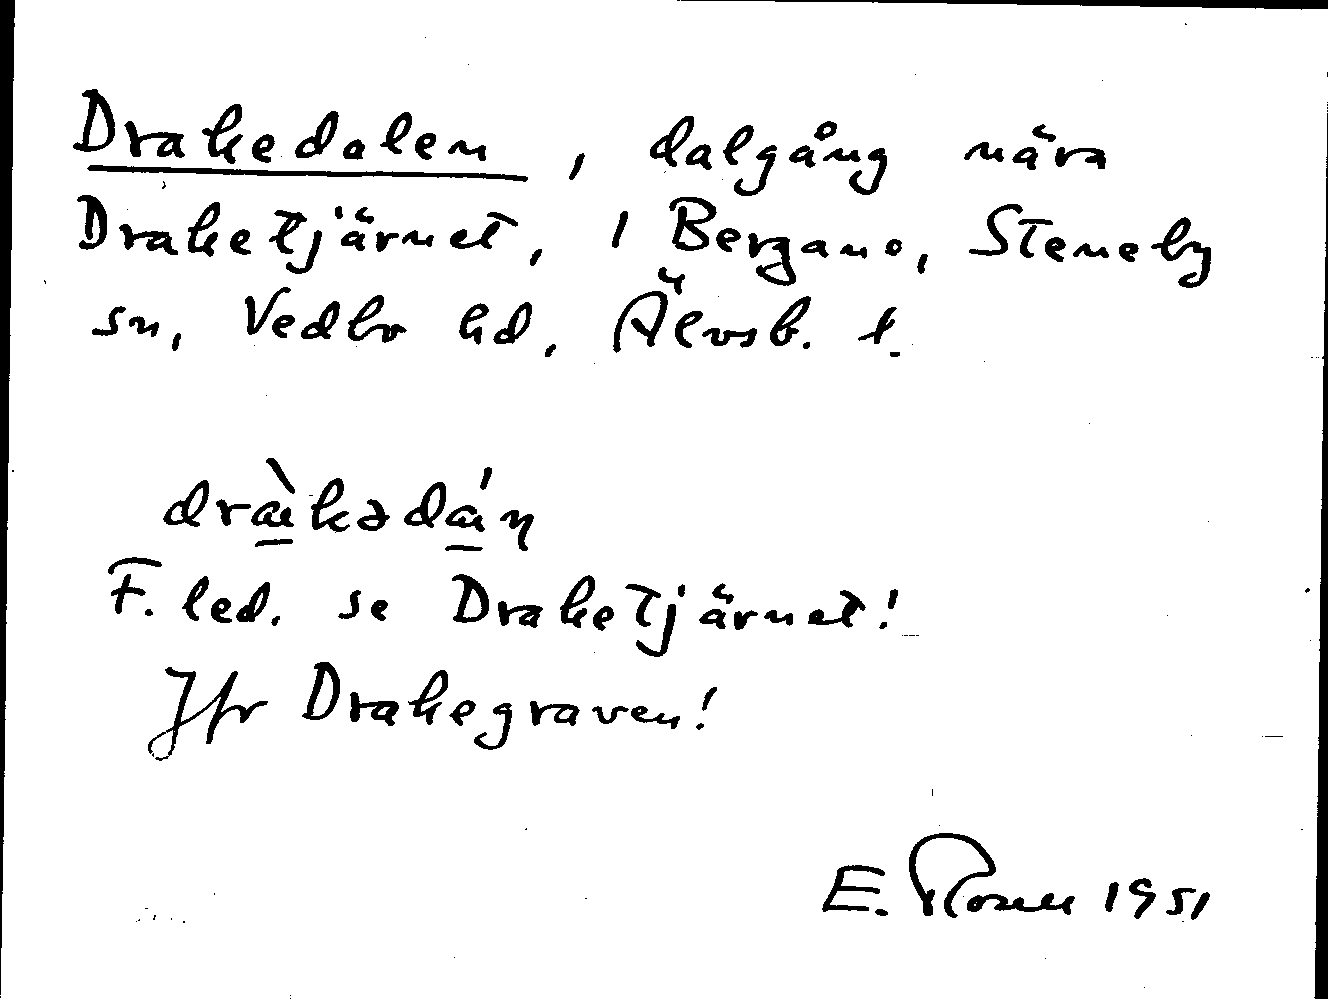 Drakedalen, dalgång nära
Draketjärnet, 1 Bergane, Steneby
sn, Vedbo hd, Älvsb. l.
F. led. se Draketjärnet!
Jfr Drakegraven!
E. Rosell 1951